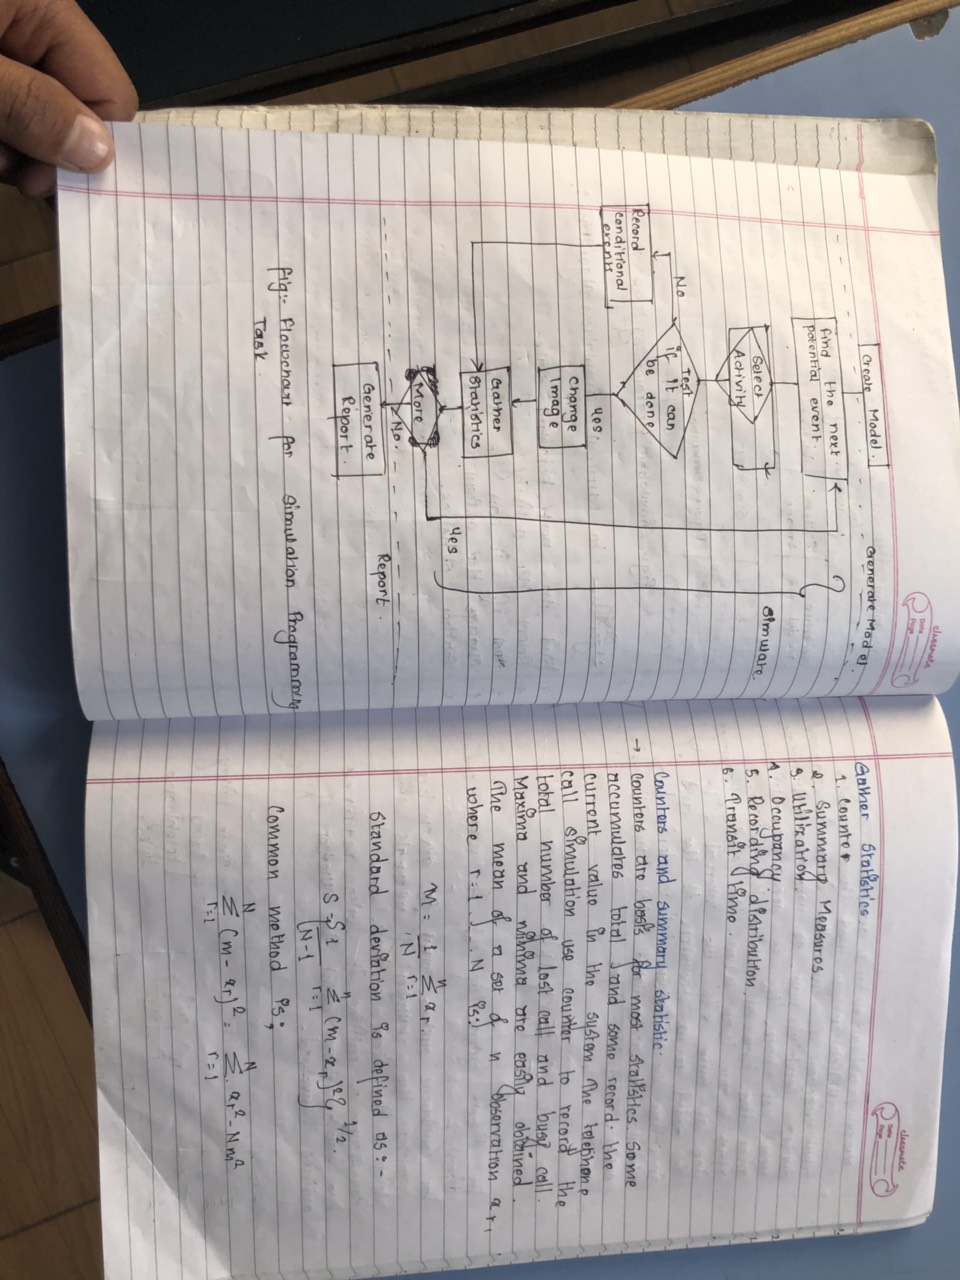 classmate
Date
Page
Create Model.
Generate Model.
find the next
potential event.
Simulate
Select
Activity
Test
if it can
be done
No
Record
conditional
events
Yes.
Change
Image
Gather
Statistics
More
Yes.
No.
Report.
Generate
Report.
fig:- flowchart for simulation Programming
Task.
classmate
Date
Page
Gather Statistics.
1. Counter
2. Summary Measures.
3. Utilization
4. Occupancy
5. Recording distribution.
6. Transit time.
Counters and summary statistic.
→ Counters are basis for most statistics. Some
accumulates total, and some record the
current value in the system. The telephone
call simulation use counter to record the
total number of lost call and busy call.
Maxima and minima are easily obtained.
The mean of a set of n observation xr,
where r = 1 ... N is:)
m = 1/N n Σ r=1 xr.
Standard deviation is defined as:-
S = { 1/N-1 n Σ r=1 (m - xr)² }^1/2.
Common method is:
N Σ r=1 (m - xr)² = N Σ r=1 xr² - Nm²